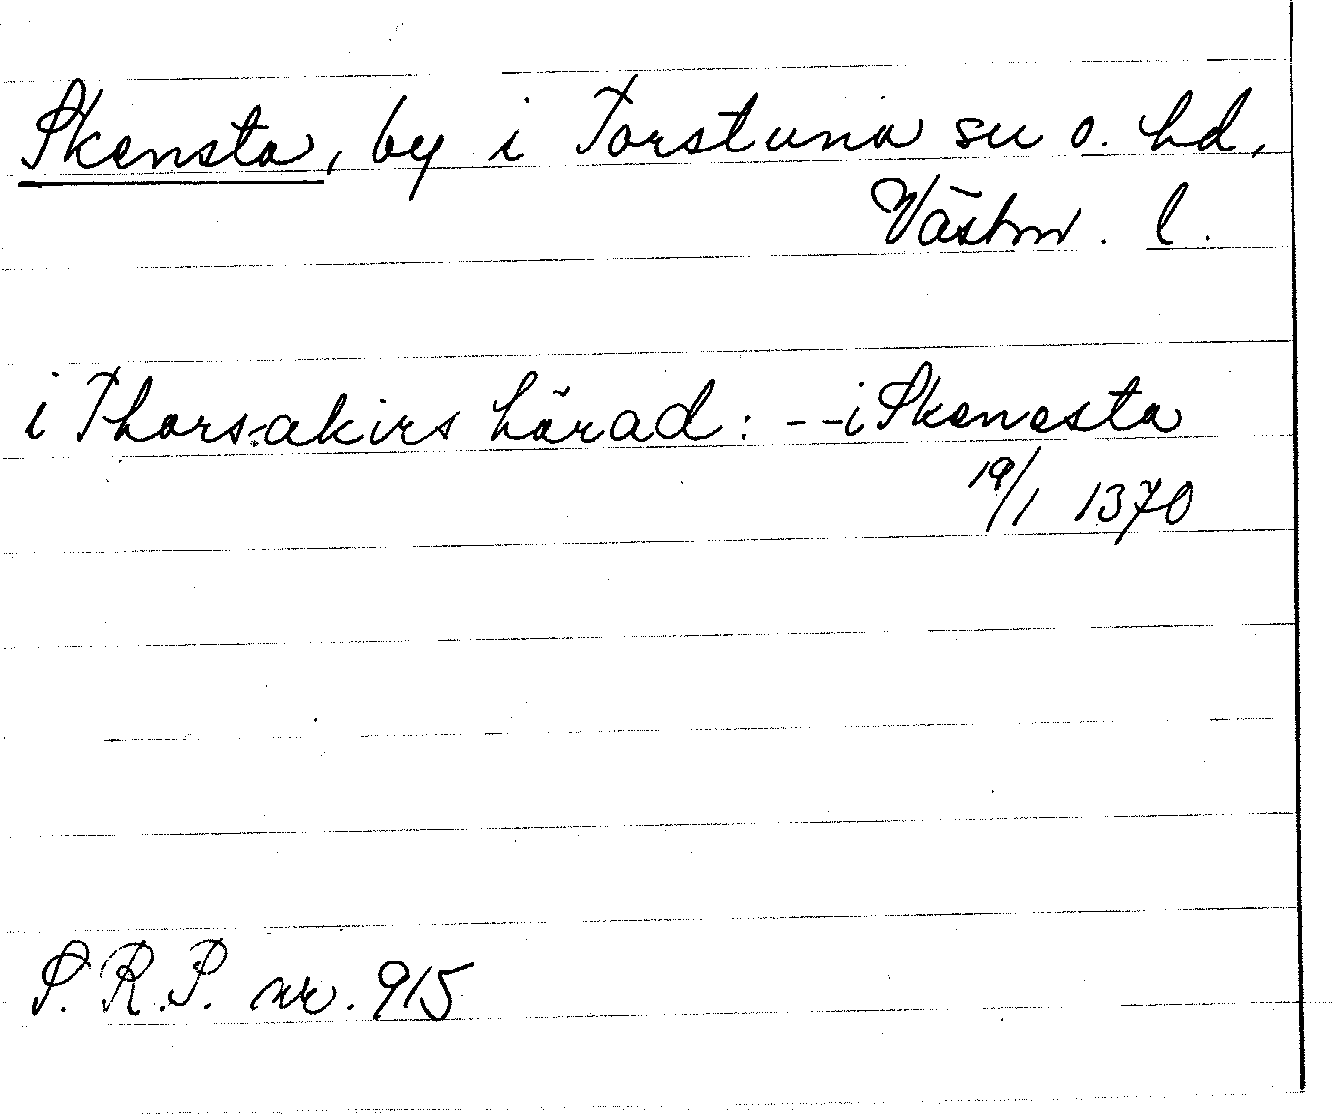 Skensta, by i Torstuna sn o. hd,
Västm. l.
i Thorsakirs härad: -- i Skenesta
19/1 1370
S.R.P. nr. 915